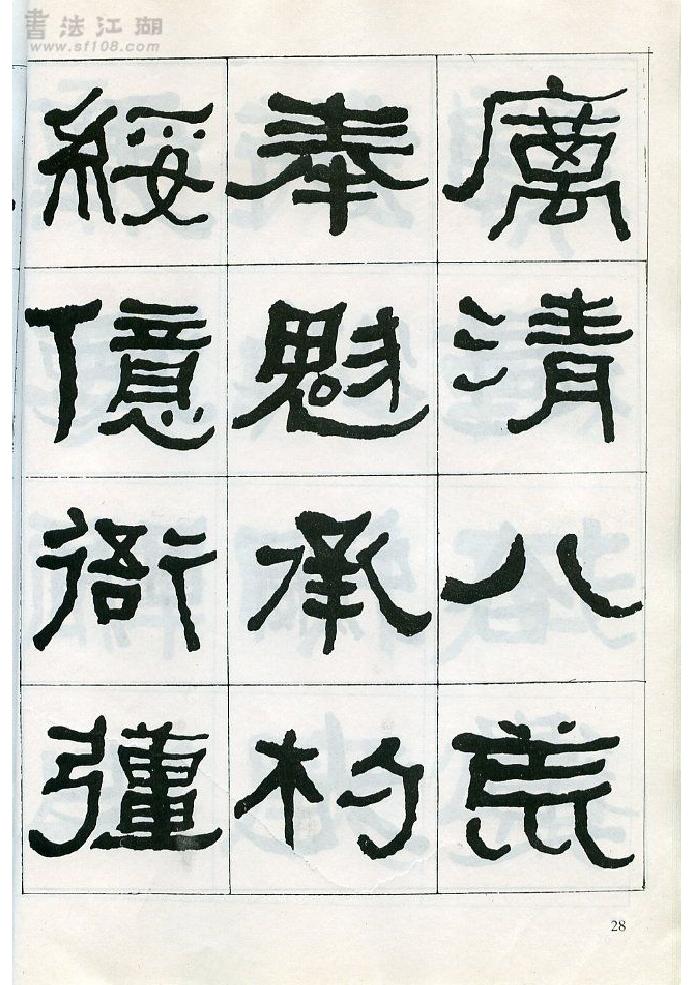 書法江湖
www.sf108.com
厲清八荒
奉魁承杓
綏億衙彊
28